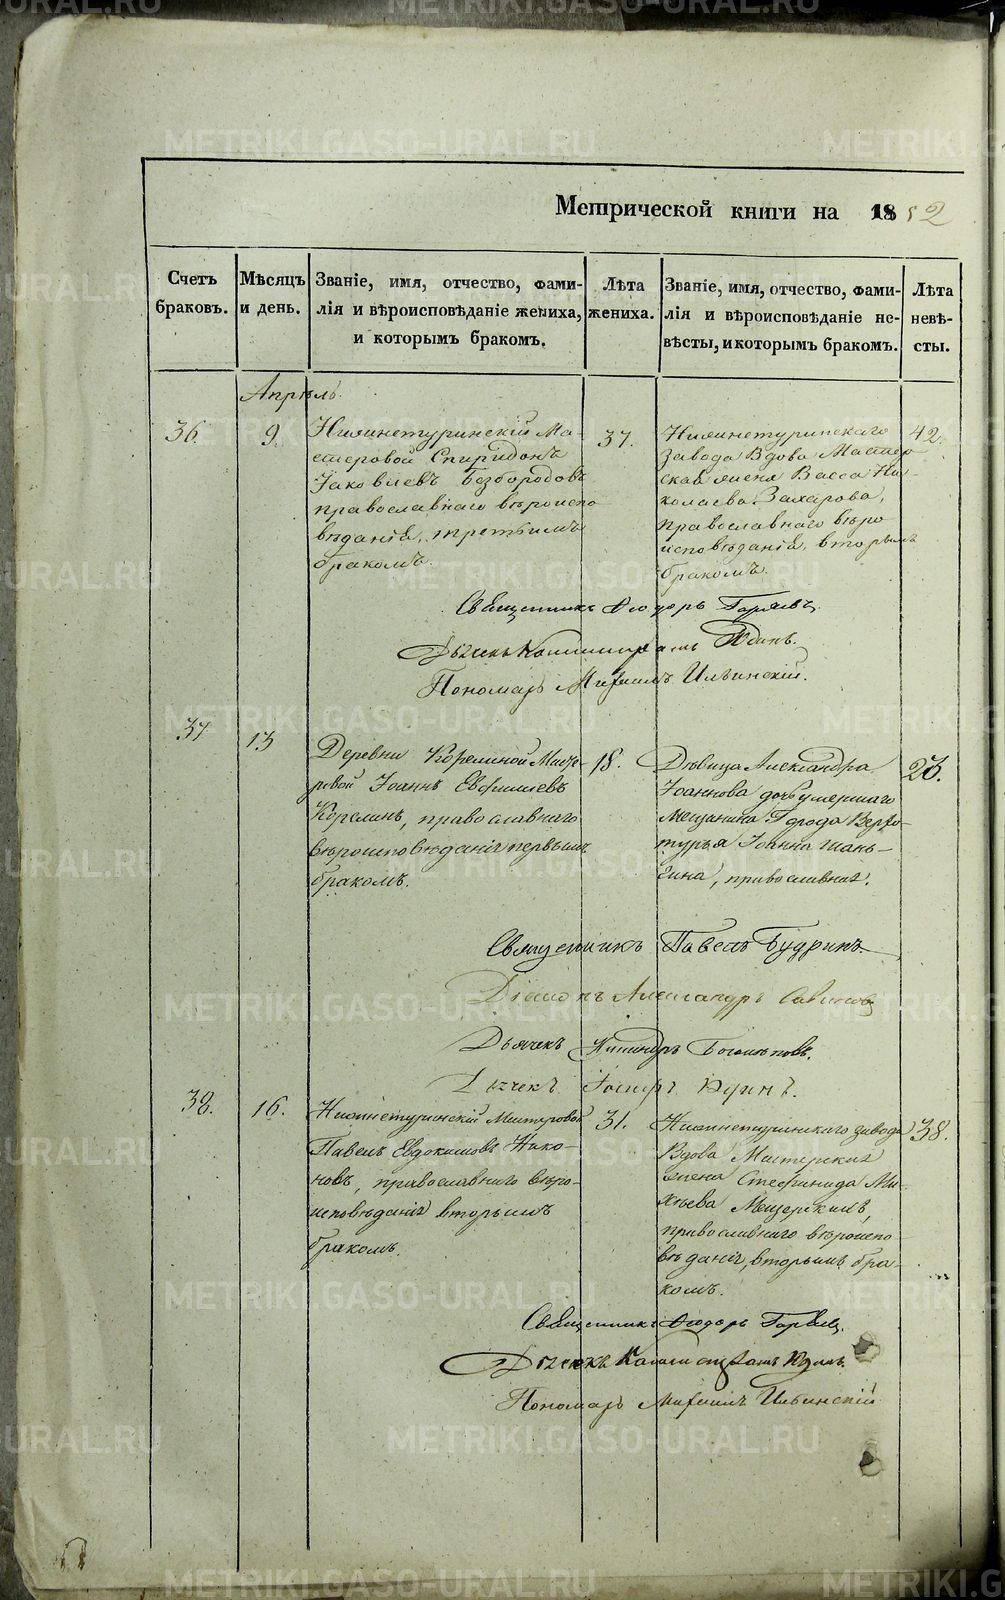 Метрической книги на 1852
Счетъ браковъ.
Мѣсяцъ и день.
Званіе, имя, отчество, фами-
лія и вѣроисповѣданіе жениха,
и которымъ бракомъ.
Лѣта жениха.
Званіе, имя, отчество, фами-
лія и вѣроисповѣданіе не-
вѣсты, и которымъ бракомъ.
Лѣта невѣ-
сты.
Апрѣль.
36.
9.
Нижнетуринскій Ма-
стеровой Спиридонъ
Іаковлевъ Безбородовъ
православнаго вѣроиспо
вѣданія, третьимъ
бракомъ.
37.
Нижнетуринскаго
Завода Вдова Мастер
ская жена Васса Ни-
колаева Захарова,
православнаго вѣро
исповѣданія, вторымъ
бракомъ.
42.
Священникъ Ѳеодоръ
Дьячекъ Юдинъ.
Пономарь Михаилъ Ильинскій.
37
13
Деревни Корелиной Масте-
ровой Іоаннъ Евфимиевъ
Корелинъ, православнаго
вѣроисповѣданія первымъ
бракомъ.
18.
Дѣвица Александра
Іоаннова дочь умершаго
Мещанина Города Верхо-
турья Іоанна Шань-
гина, православная.
23.
Священникъ Павелъ Будринъ.
Діаконъ Александръ
Дьячекъ Боголѣповъ.
Дьячекъ Юдинъ.
38.
16.
Нижнетуринскій Мастеровой
Павелъ Евдокимовъ Нико-
новъ, православнаго вѣро-
исповѣданія вторымъ
бракомъ.
31.
Нижнетуринскаго завода
Вдова Мастерская
жена Стефанида Ми-
хѣева Мещерскихъ,
православнаго вѣроиспо
вѣданія, вторымъ бра-
комъ.
38.
Священникъ Ѳеодоръ
Дьячекъ Юдинъ.
Пономарь Михаилъ Ильинскій
METRIKI.GASO-URAL.RU